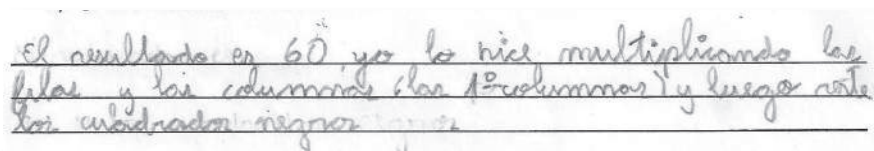 El resultado es 60 yo lo hice multiplicando las
filas y las columnas (las 1º columnas) y luego reste
los cuadrados negros